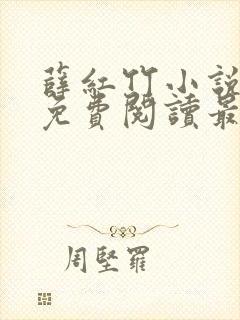 薛紅竹小說
免費閱讀最
周堅羅